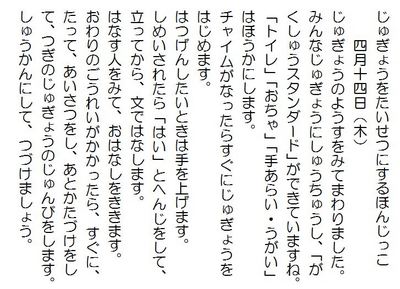 じゅぎょうをたいせつにするほんじっこ
四月十四日（木）
じゅぎょうのようすをみてまわりました。
みんなじゅぎょうにしゅうちゅうし、「が
くしゅうスタンダード」ができていますね。
「トイレ」「おちゃ」「手あらい・うがい」
はほうかにします。
チャイムがなったらすぐにじゅぎょうを
はじめます。
はつげんしたいときは手を上げます。
しめいされたら「はい」とへんじをして、
立ってから、文ではなします。
はなす人をみて、おはなしをききます。
おわりのごうれいがかかったら、すぐに、
たって、あいさつをし、あとかたづけをし
て、つぎのじゅぎょうのじゅんびをします。
しゅうかんにして、つづけましょう。